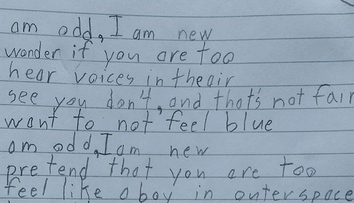 am odd, I am new
wonder if you are too
hear voices in theair
see you don't, and that's not fair
want to not feel blue
am odd, I am new
pretend that you are too
feel like a boy in outerspace